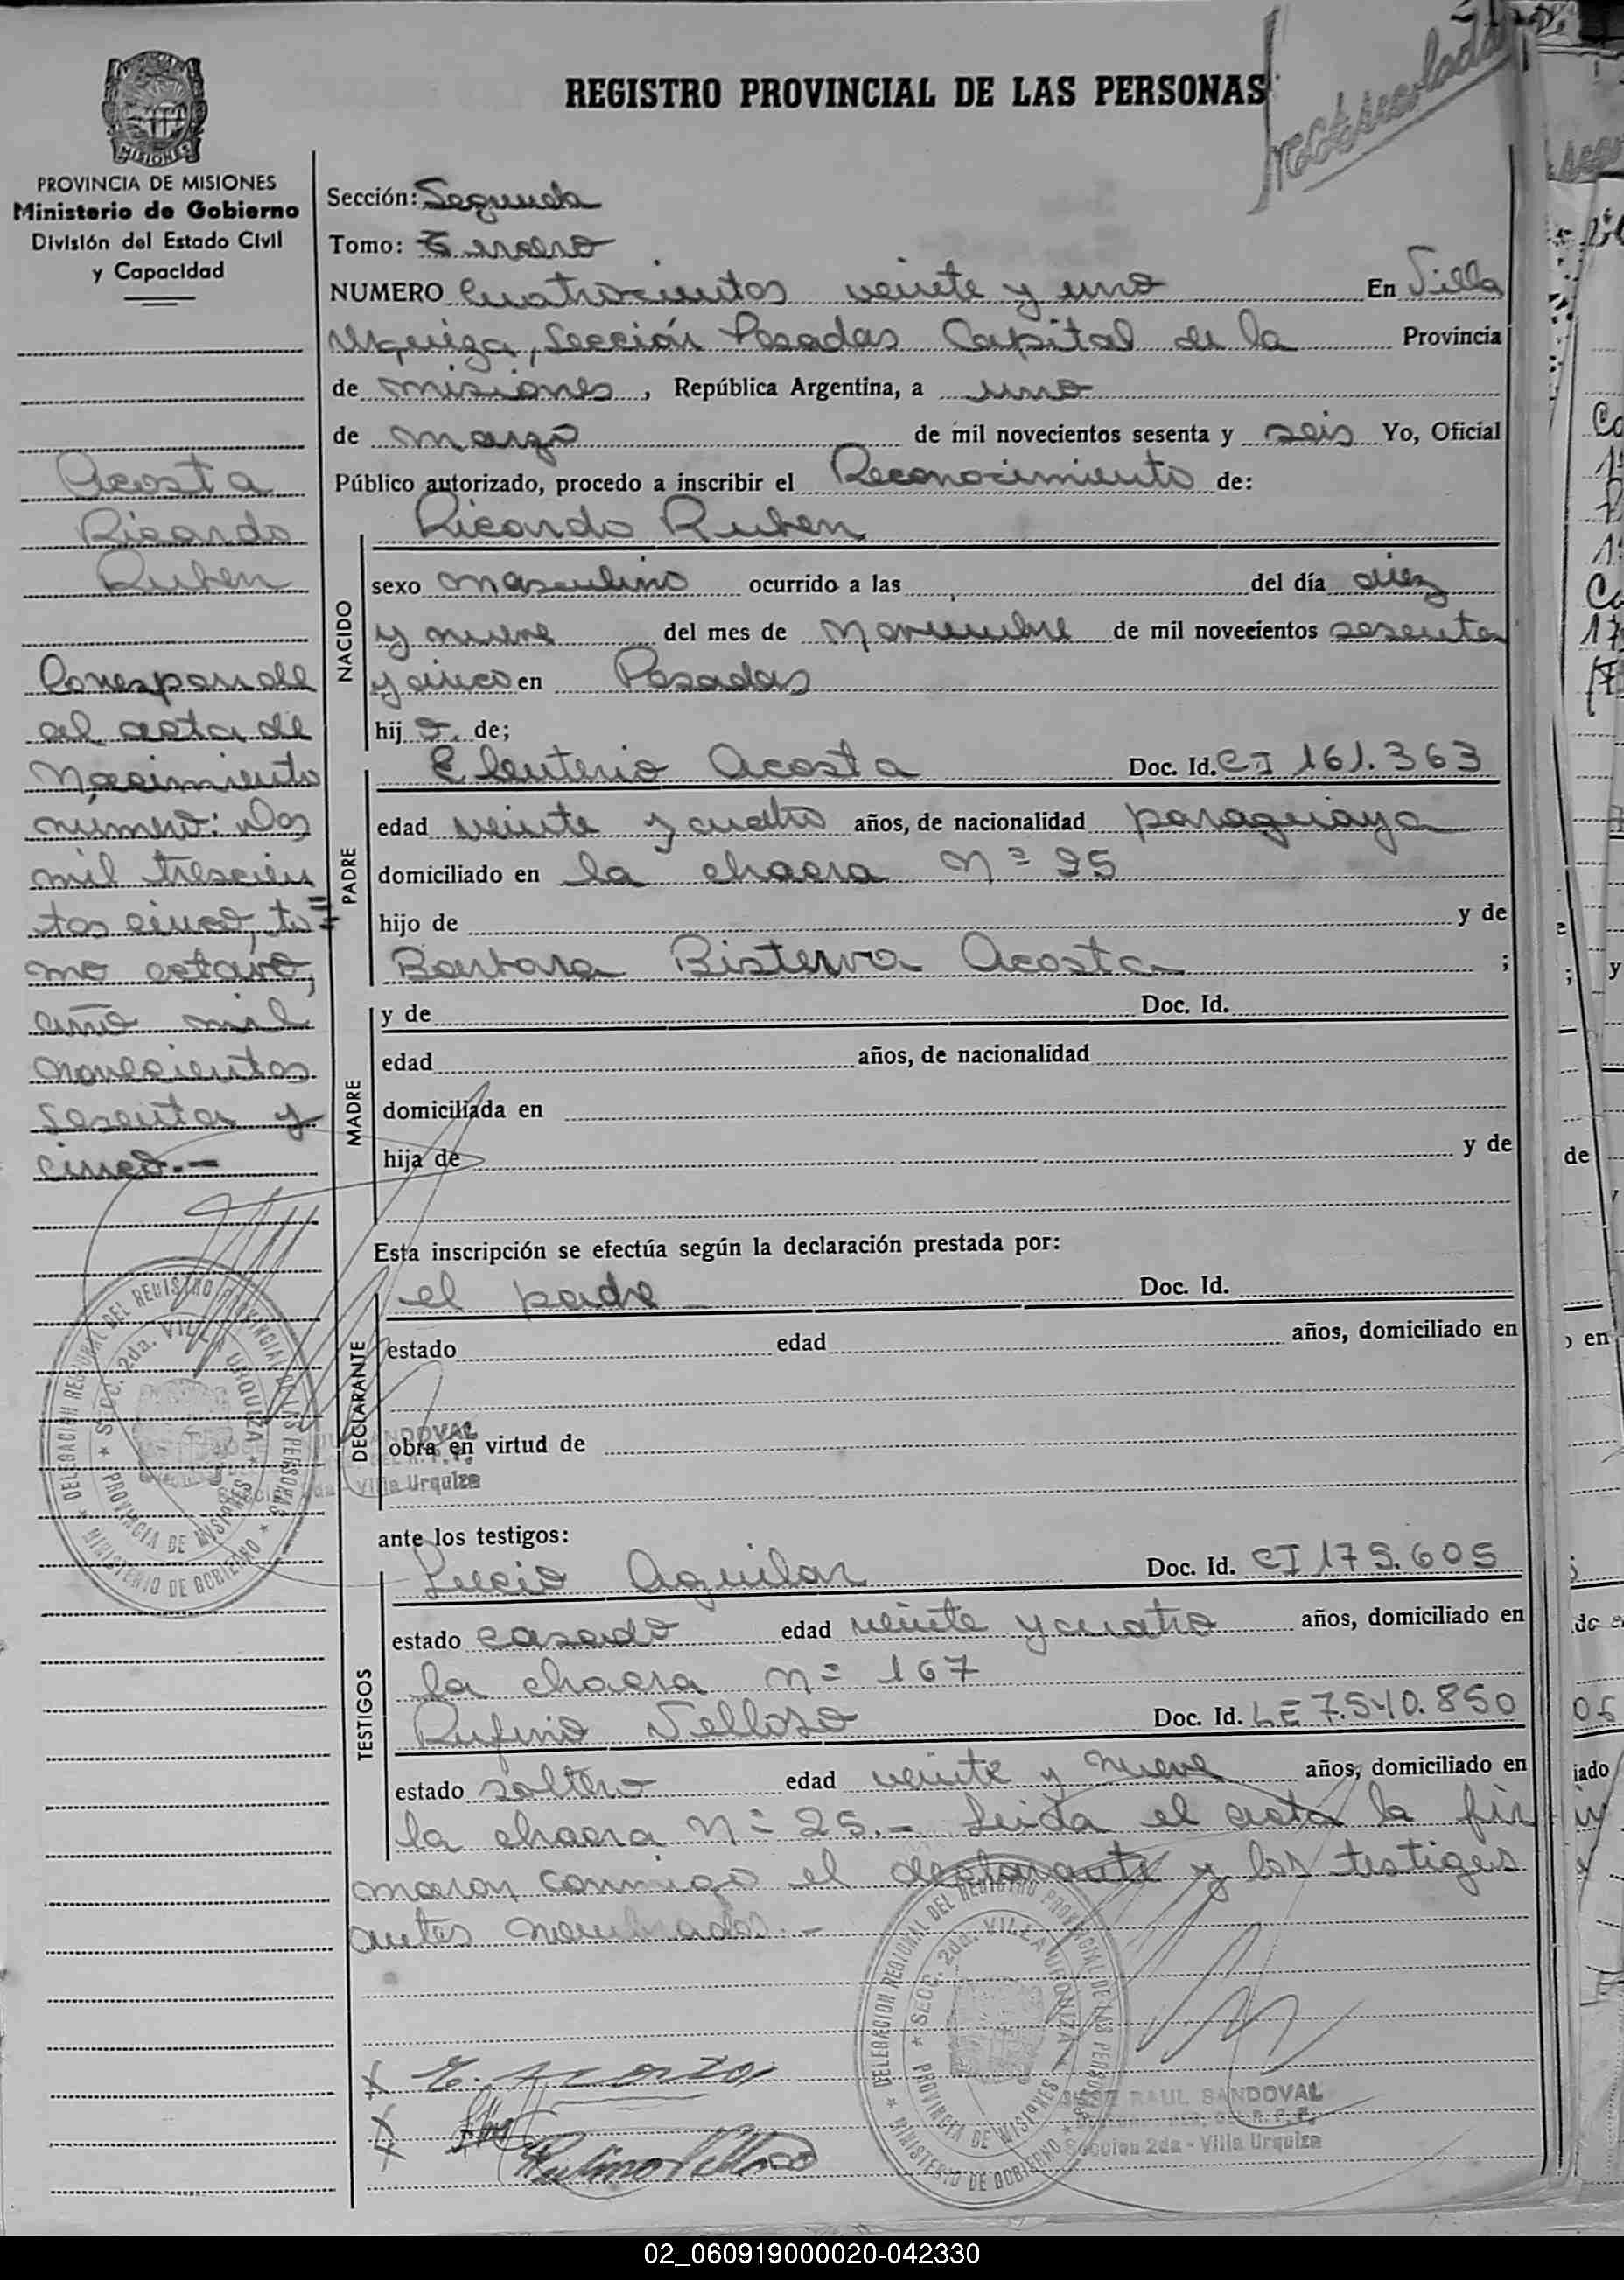 REGISTRO PROVINCIAL DE LAS PERSONAS
MISIONES
PROVINCIA DE MISIONES
Ministerio de Gobierno
División del Estado Civil
y Capacidad
Acosta
Ricardo
Ruben
Corresponde
al acta de
Nacimiento
numero: Dos
mil trescien
tos cinco, to=
mo octavo,
año mil
novecientos
sesenta y
cinco.-
Sección: Segunda
Tomo: Tercero
NUMERO Cuatrocientos veinte y uno En Villa
Urquiza, Sección Posadas Capital de la Provincia
de misiones, República Argentina, a uno
de marzo de mil novecientos sesenta y seis Yo, Oficial
Público autorizado, procedo a inscribir el Reconocimiento de:
Ricardo Ruben
NACIDO
sexo masculino ocurrido a las del día diez
y nueve del mes de Noviembre de mil novecientos sesenta
y cinco en Posadas
hijo. de;
PADRE
Eleuterio Acosta Doc. Id. CI 161.363
edad veinte y cuatro años, de nacionalidad paraguaya
domiciliado en la chacra Nº 95
hijo de y de
Barbara Acosta ;
MADRE
y de Doc. Id.
edad años, de nacionalidad
domiciliada en
hija de y de
Esta inscripción se efectúa según la declaración prestada por:
DECLARANTE
el padre Doc. Id.
estado edad años, domiciliado en
obra en virtud de
ante los testigos:
TESTIGOS
Lucio Aguilar Doc. Id. CI 175.605
estado casado edad veinte y cuatro años, domiciliado en
la chacra nº 167
Rufino Velloso Doc. Id. LE 7.540.850
estado soltero edad veinte y nueve años, domiciliado en
la chacra nº 25.- Leida el acta la fir
maron conmigo el declarante y los testigos
antes nombrados.-
DELEGACION REGIONAL DEL REGISTRO PROVINCIAL DE LAS PERSONAS
SECC. 2da. VILLA URQUIZA
PROVINCIA DE MISIONES
MINISTERIO DE GOBIERNO
SANDOVAL
Villa Urquiza
DELEGACION REGIONAL DEL REGISTRO PROVINCIAL DE LAS PERSONAS
SECC. 2da. VILLA URQUIZA
PROVINCIA DE MISIONES
MINISTERIO DE GOBIERNO
RAUL SANDOVAL
Sección 2da - Villa Urquiza
Rufino Velloso
02_060919000020-042330